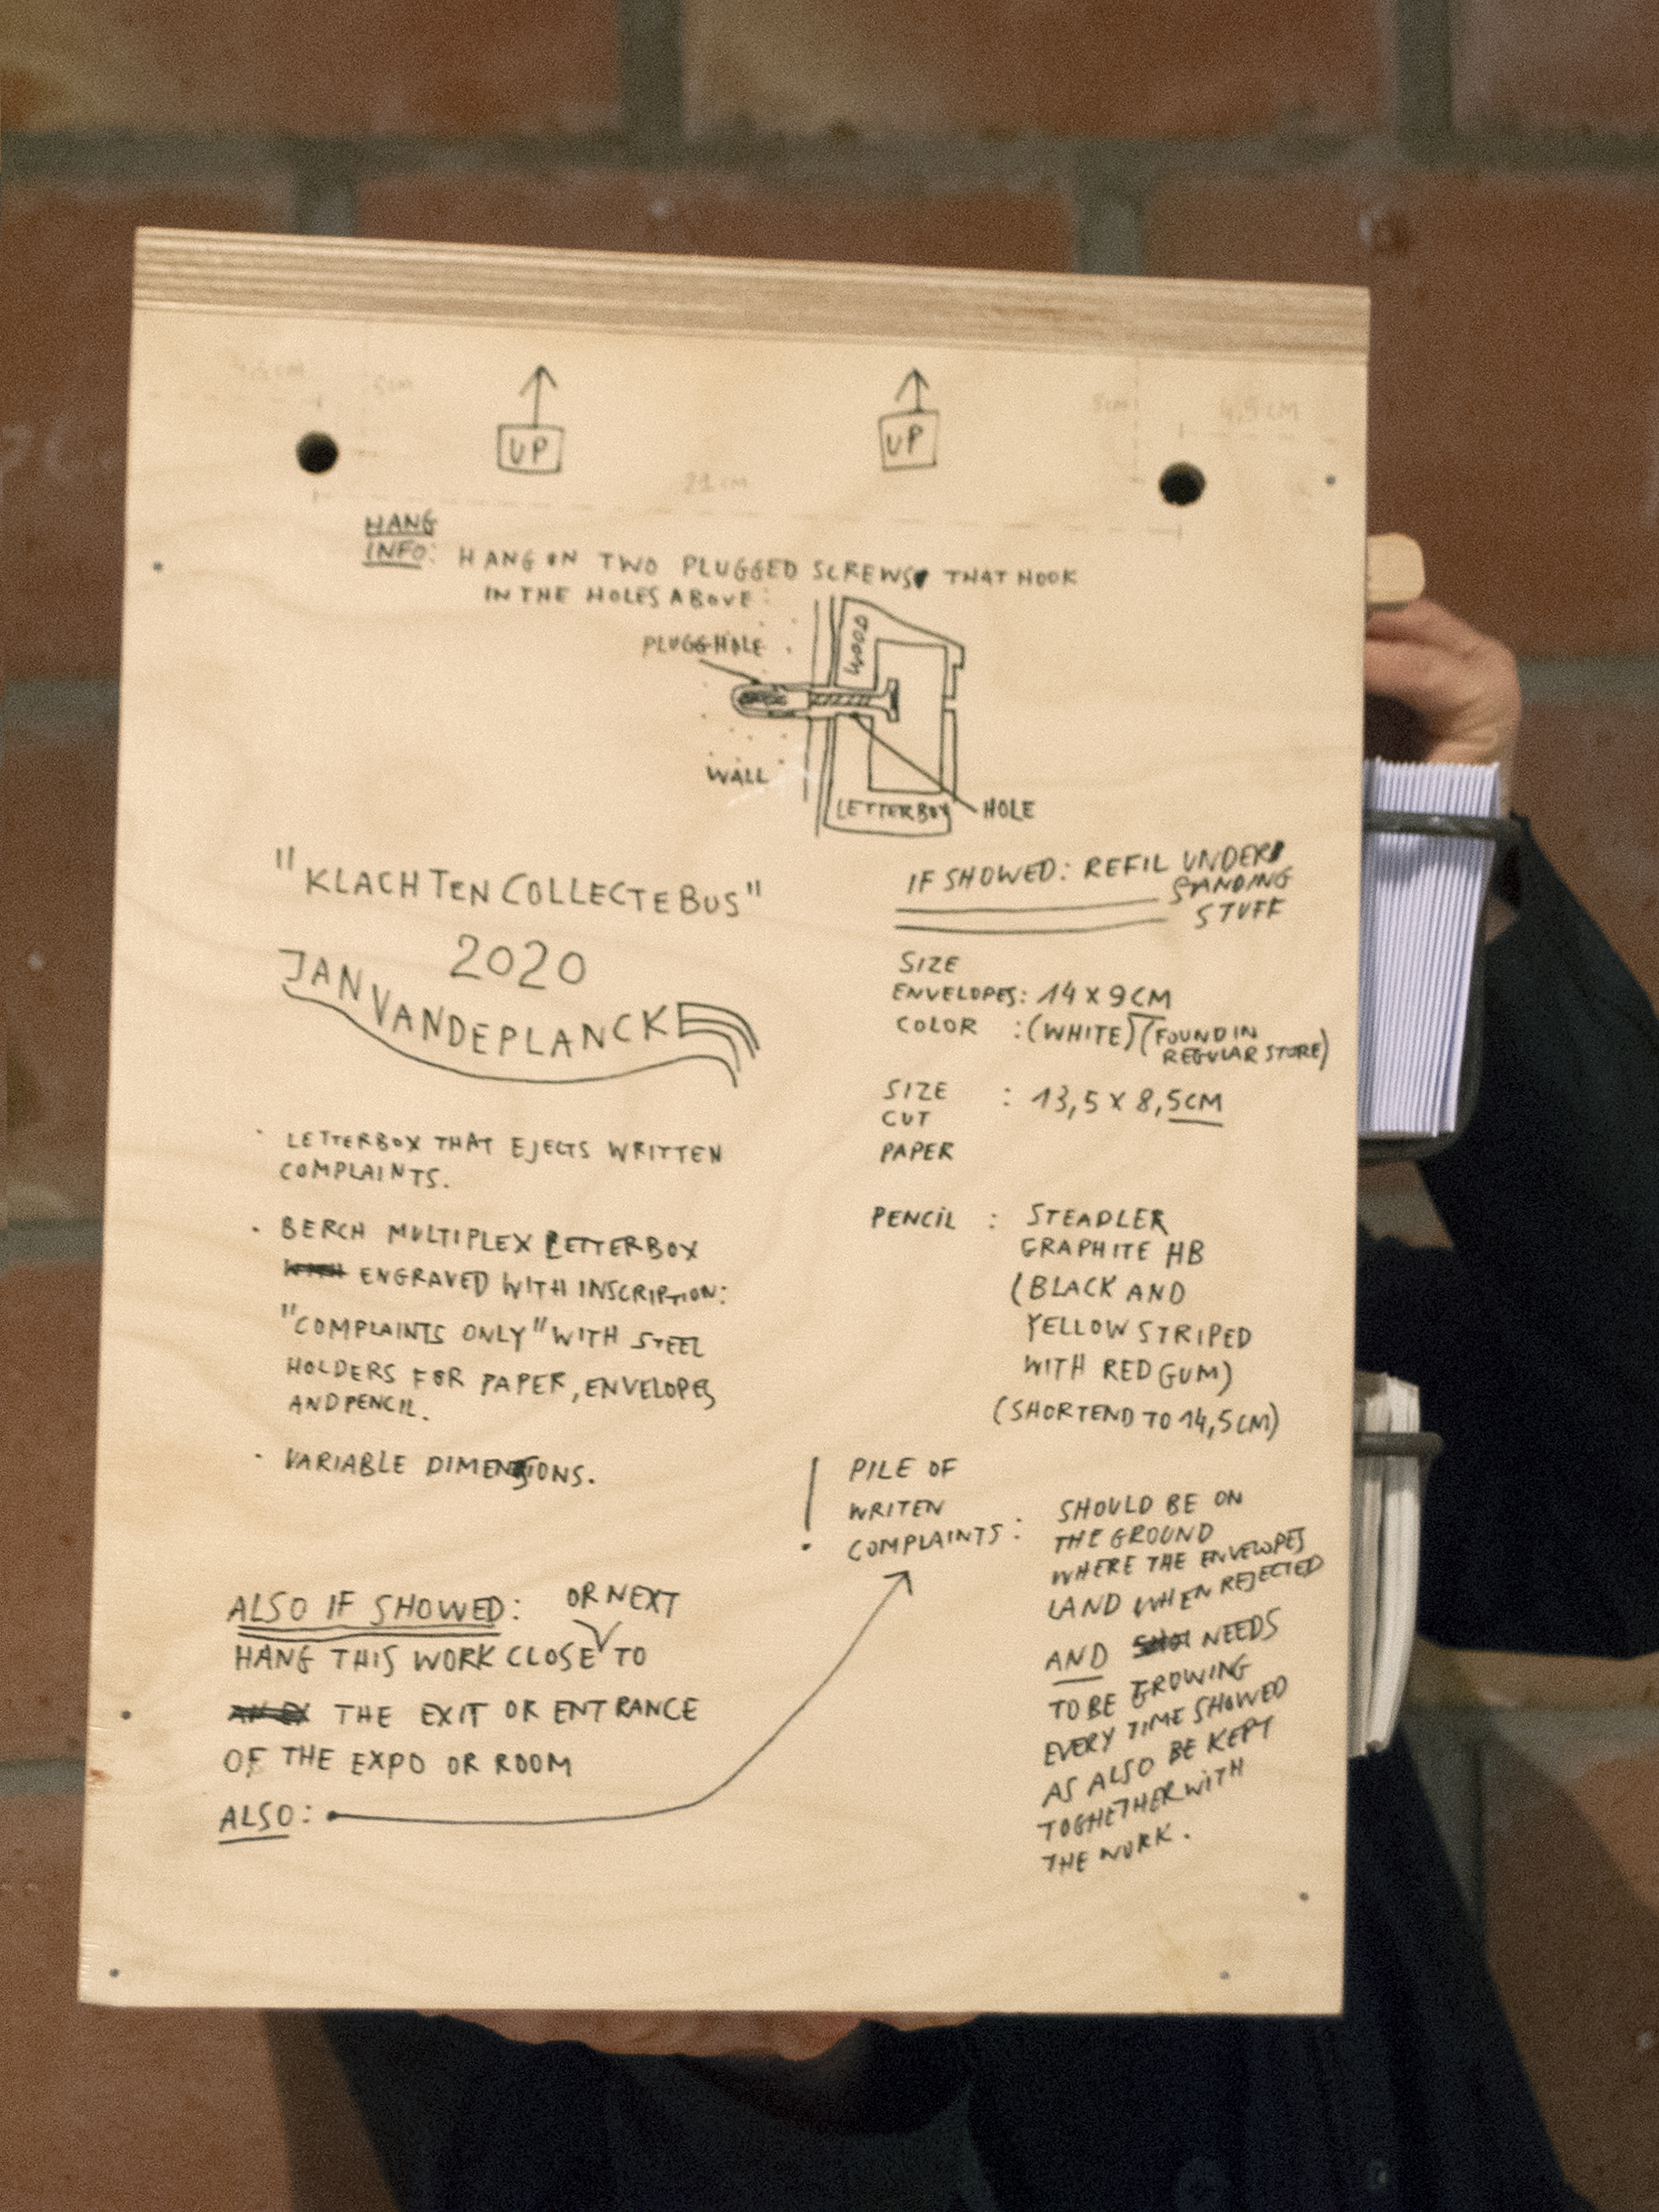 5CM
5CM
4,5 CM
UP
UP
21 CM
HANG
INFO: HANG ON TWO PLUGGED SCREWS THAT HOOK
IN THE HOLES ABOVE:
PLUGGHOLE
WOOD
WALL
LETTERBOX
HOLE
"KLACHTENCOLLECTEBUS"
2020
JAN VANDEPLANCKE
· LETTERBOX THAT EJECTS WRITTEN
COMPLAINTS.
· BERCH MULTIPLEX LETTERBOX
ENGRAVED WITH INSCRIPTION:
"COMPLAINTS ONLY" WITH STEEL
HOLDERS FOR PAPER, ENVELOPES
AND PENCIL.
· VARIABLE DIMENSIONS.
ALSO IF SHOWED: OR NEXT
HANG THIS WORK CLOSE TO
THE EXIT OR ENTRANCE
OF THE EXPO OR ROOM
ALSO:
IF SHOWED: REFIL UNDER
STANDING
STUFF
SIZE
ENVELOPES: 14 X 9 CM
COLOR : (WHITE) (FOUND IN
REGULAR STORE)
SIZE : 13,5 X 8,5CM
CUT
PAPER
PENCIL : STEADLER
GRAPHITE HB
(BLACK AND
YELLOW STRIPED
WITH RED GUM)
(SHORTEND TO 14,5 CM)
! PILE OF
WRITEN
COMPLAINTS:
SHOULD BE ON
THE GROUND
WHERE THE ENVELOPES
LAND WHEN REJECTED
AND NEEDS
TO BE GROWING
EVERY TIME SHOWED
AS ALSO BE KEPT
TOGHETHER WITH
THE WORK.